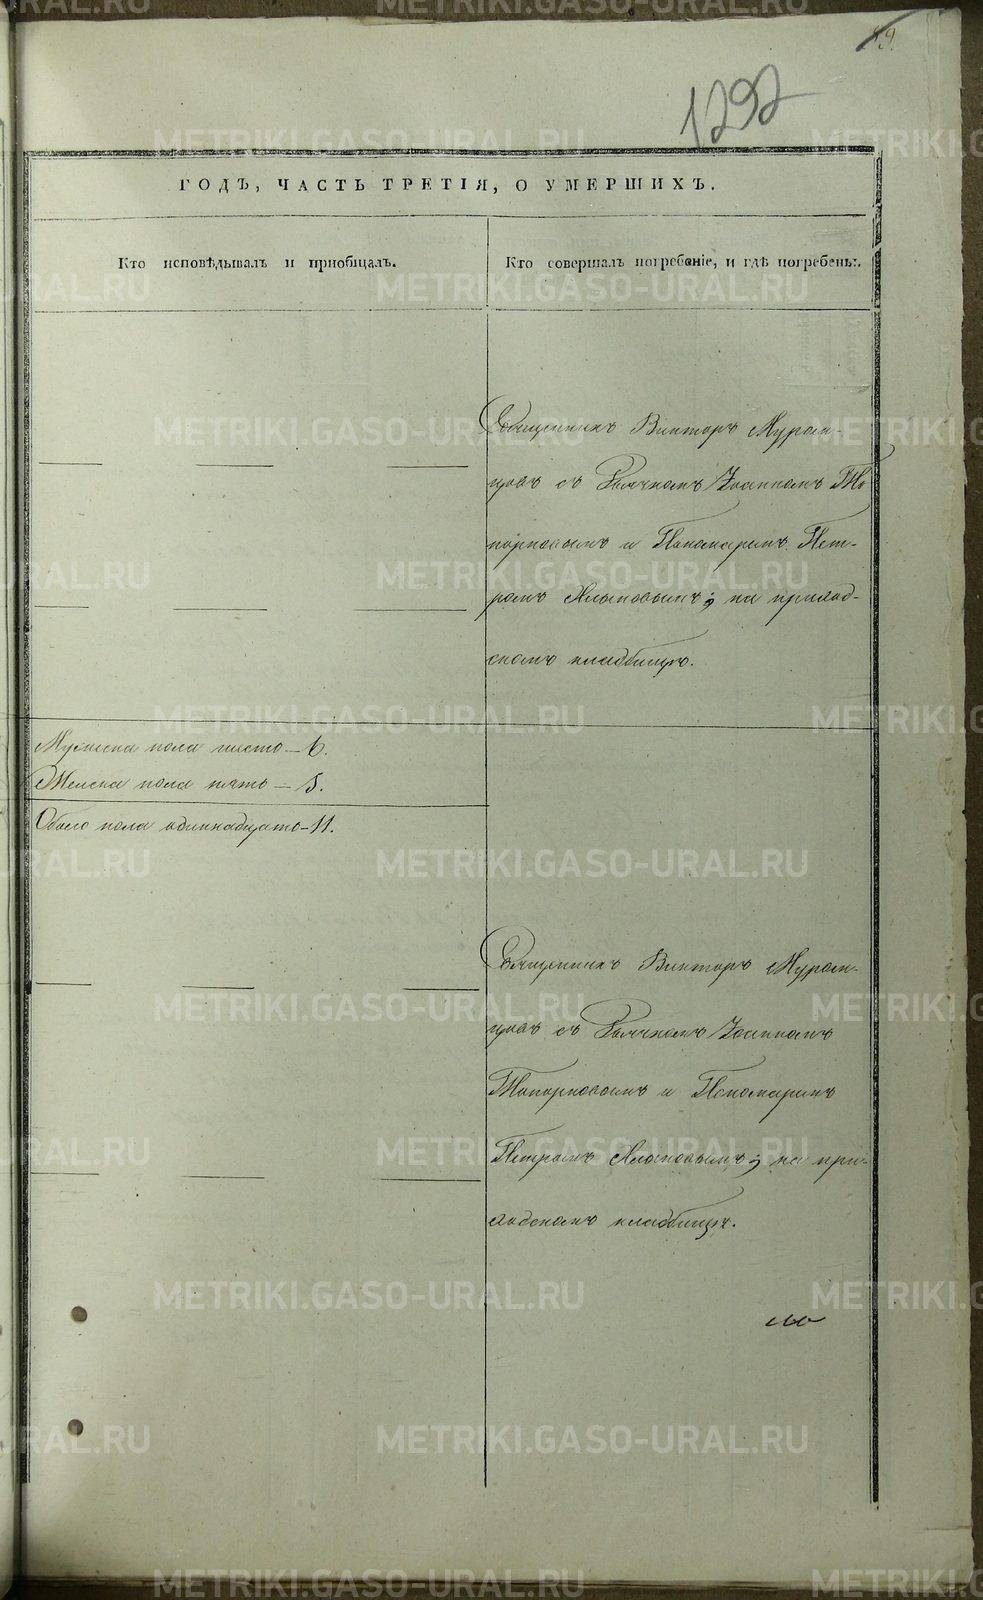 19.
1292
ГОДЪ, ЧАСТЬ ТРЕТІЯ, О УМЕРШИХЪ.
Кто исповѣдывалъ и приобщалъ.
Кто совершалъ погребеніе, и гдѣ погребены.
Священникъ Викторъ Муром-
цовъ съ Дьячкомъ Іоанномъ То
порковымъ и Пономаремъ Пет-
ромъ Хлыновымъ; на приход-
скомъ кладбищѣ.
Мужеска пола шесть – 6.
Женска пола пять – 5.
Обоего пола одиннадцать – 11.
Священникъ Викторъ Муром-
цовъ съ Дьячкомъ Іоанномъ
Топорковымъ и Пономаремъ
Петромъ Хлыновымъ; на при-
ходскомъ кладбищѣ.
METRIKI.GASO-URAL.RU